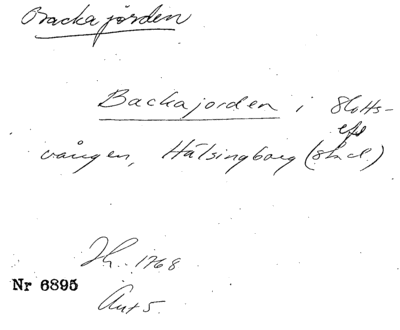 Backajorden
Backajorden i Slotts-
vången, Hälsingborg (stad)
1768
Nr 6895
Ant 5.